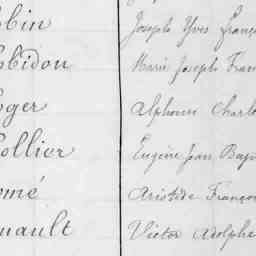 bbin Joseph Yves Franço
bidou Marie Joseph Fran
oger Alphonse Charle
ollier Eugène Jean Bap
omé Aristide Franço
nault Victor Adolphe